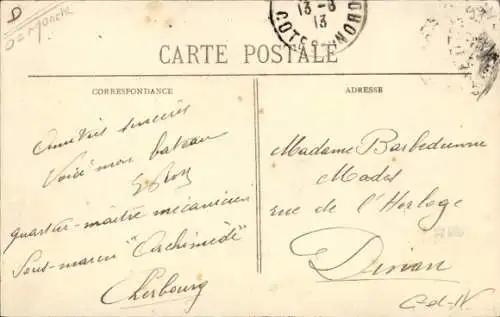 D
D = Manche
13-8
13
COTES NORD
CARTE POSTALE
CORRESPONDANCE
ADRESSE
Amitiés sincères
Voici mon bateau
quartier-maître mécanicien
Sous-marin "Archimède"
Cherbourg
Madame Barbedienne
Modes
rue de l'Horloge
Dinan
C-d-N